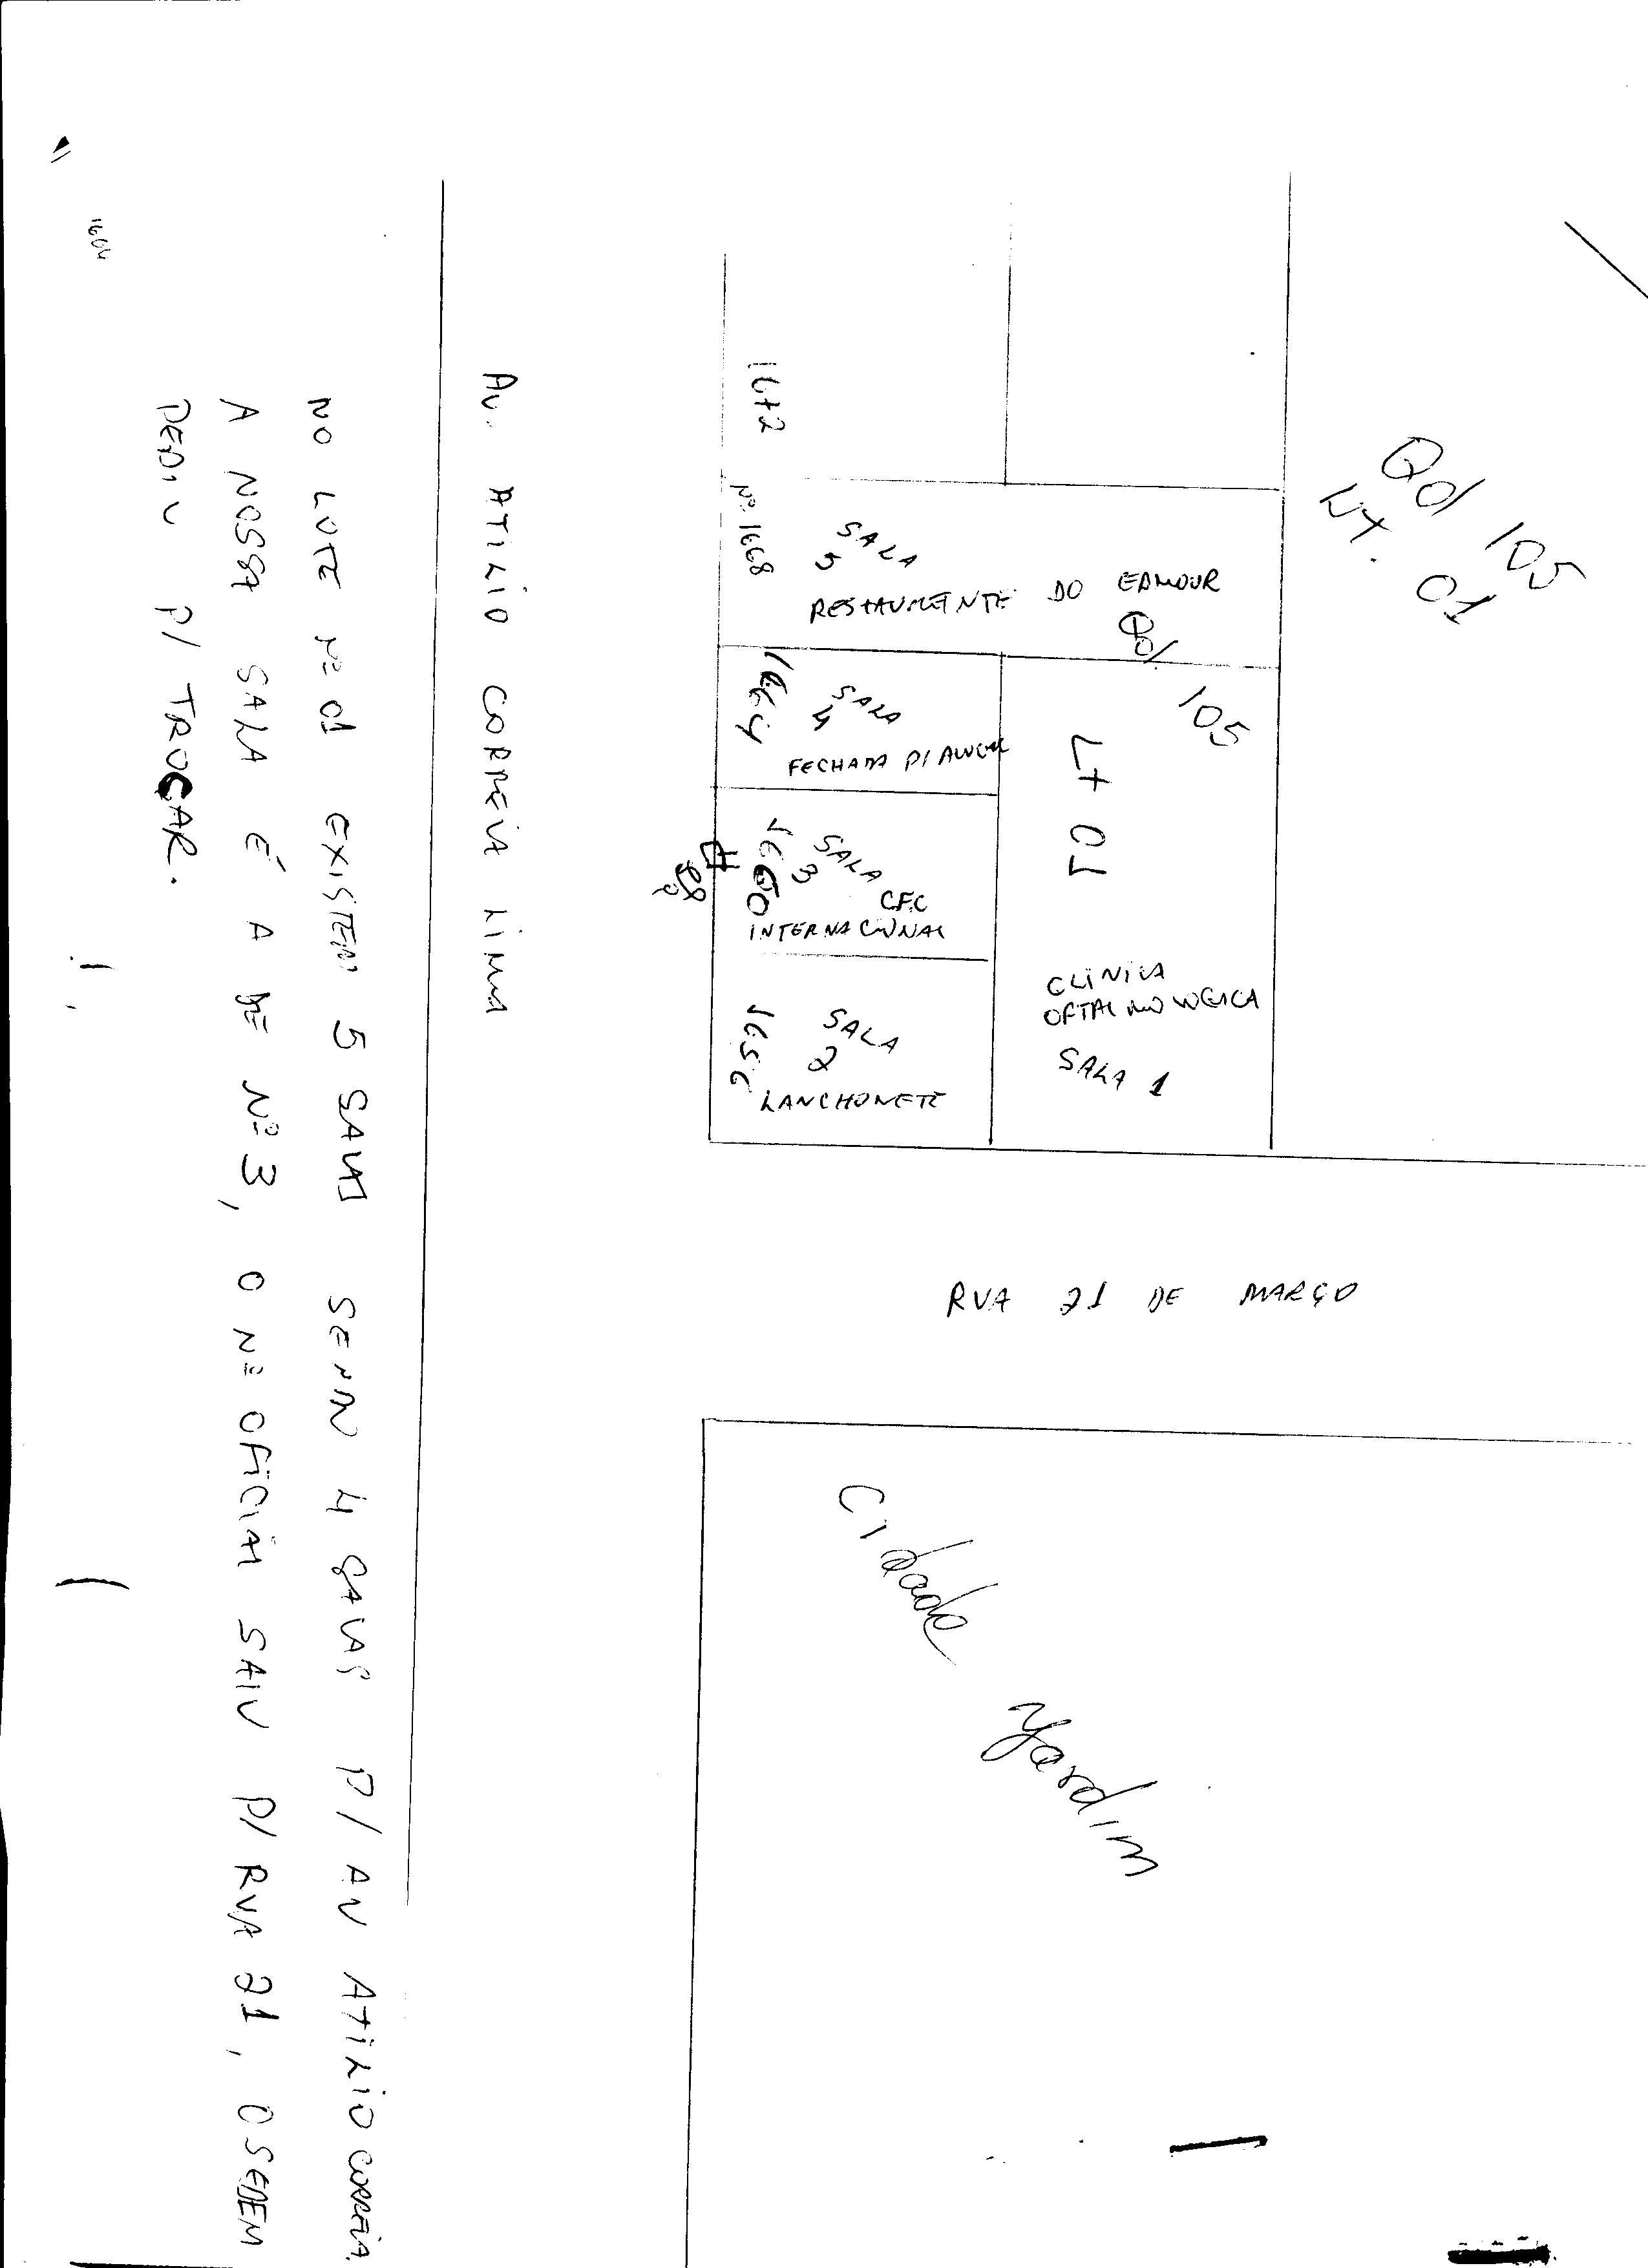 Qd 105
Lt. 01
1672
Nº 1668
SALA
5
RESTAURENTE DO EDMOUR
Qd 105
1664
SALA
4
FECHADA P/ ALUGAR
LT 01
1660
SALA
3
CFC
INTERNACIONAL
1656
SALA
2
LANCHONETE
CLINICA
OFTALMOLOGICA
SALA 1
RUA 21 DE MARÇO
Cidade Jardim
AV. ATILIO CORREIA LIMA
NO LOTE Nº 01 EXISTEM 5 SALAS SENDO 4 SALAS P/ AV ATILIO CORREIA.
A NOSSA SALA É A DE Nº 3, O Nº OFICIAL SAIU P/ RUA 21, O SEDEM
PEDIU P/ TROCAR.
1664